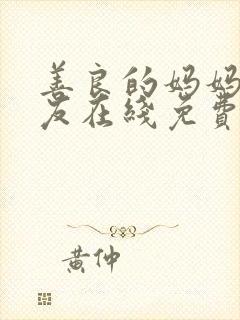 善良的妈妈
友在线免費
黄仲